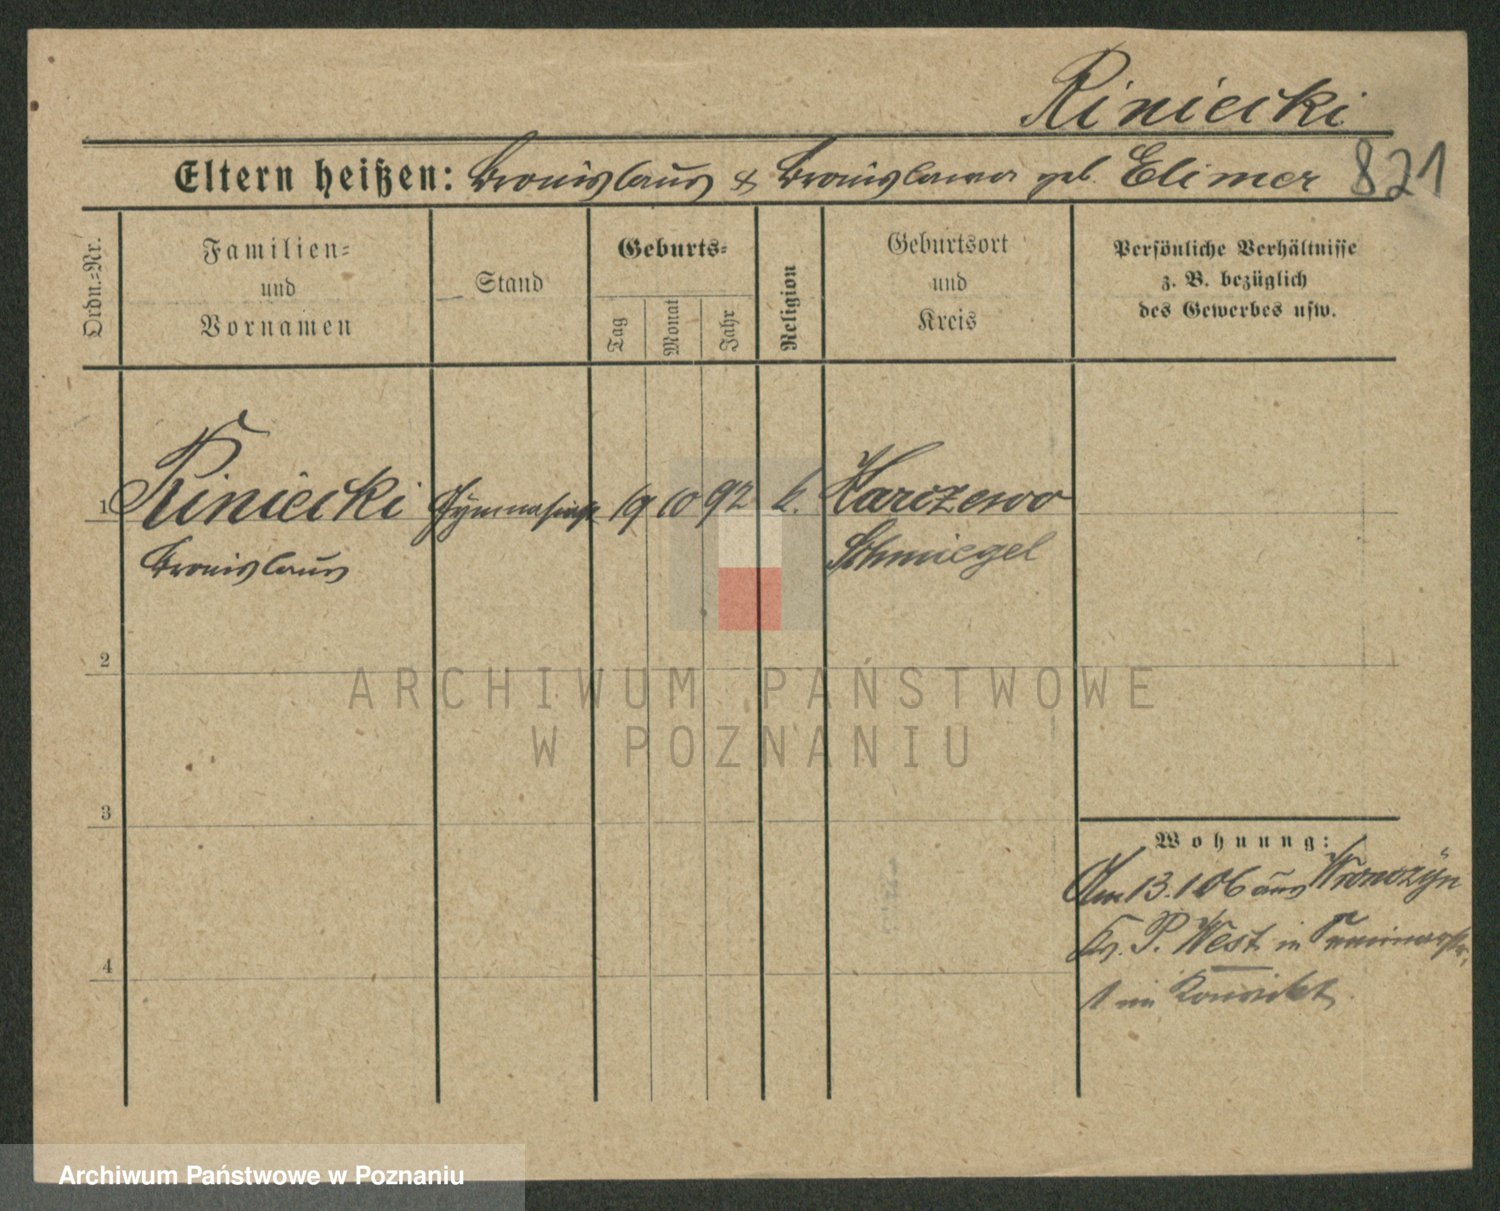 Riniecki
Eltern heißen: Bronislaus & Bronislawa geb. Elimer 821
Ordn.-Nr.
Familien-
und
Vornamen
Stand
Geburts-
Tag
Monat
Jahr
Religion
Geburtsort
und
Kreis
Persönliche Verhältnisse
z. B. bezüglich
des Gewerbes usw.
1 Riniecki Gymnasiast 19 10 92 k. Karczewo
Bronislaus Schmiegel
2
ARCHIWUM PAŃSTWOWE
W POZNANIU
3
Wohnung:
Am 13.1 06 aus Wronczyn
Kr. P. West in
4
1 im Konvikt
Archiwum Państwowe w Poznaniu